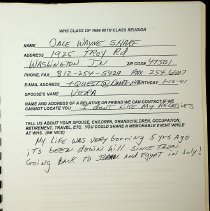 WHS CLASS OF 1958 45TH CLASS REUNION
NAME DALE WAYNE SHAKE
ADDRESS 1925 TROY RD
WASHINGTON IN ZIP CODE 47501
PHONE, FAX 812-254-5429 FAX 254-6107
E-MAIL ADDRESS BIRTHDAY 1-12-40
SPOUSE'S NAME VERA
NAME AND ADDRESS OF A RELATIVE OR FRIEND WE CAN CONTACT IF WE
CANNOT LOCATE YOU I DON'T LIKE MY RELATIVES
TELL US ABOUT YOUR SPOUSE, CHILDREN, GRANDCHILDREN, OCCUPATION,
RETIREMENT, TRAVEL, ETC. YOU COULD SHARE A MEMORABLE EVENT WHILE
AT WHS. (BE NICE)
MY LIFE WAS VERY BORING 5 YRS AGO
ITS BEEN DOWN HILL SINCE THEN
GOING BACK TO AND EGYPT IN JULY!